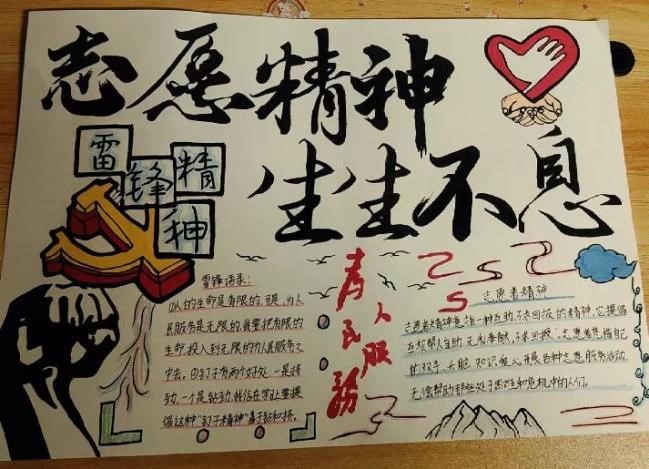 志愿精神
生生不息
雷锋精神
为人民服务
雷锋语录：
①人的生命是有限的，可是，为人
民服务是无限的，我要把有限的
生命，投入到无限的为人民服务之
中去。②钉子有两个好处：一是挤
劲，一个是钻劲，我们在学习上，要提
倡这种"钉子精神"善于钻和挤。
志愿者精神
志愿者精神是指一种互助，不求回报的精神，它提倡
互相帮人自助，无私奉献，不求回报。志愿者凭借自己
的双手，头脑，知识，爱心开展各种志愿服务活动，
无偿帮助那些处于困难和危机中的人们。